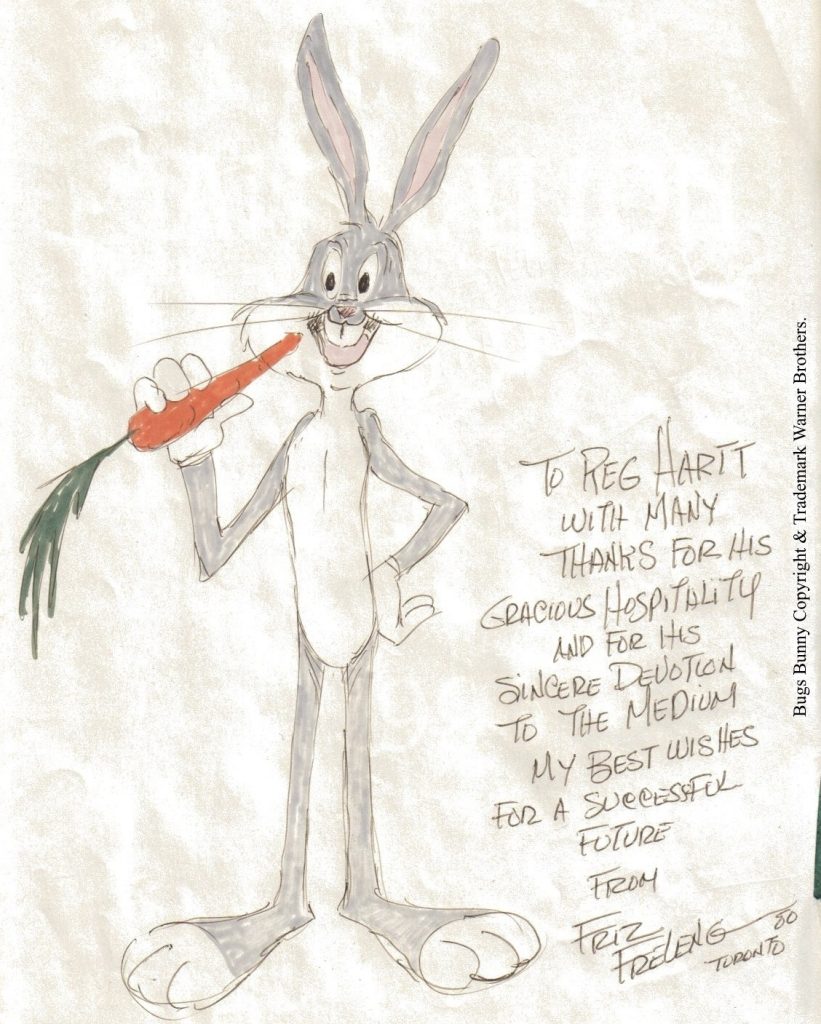 TO REG HARTT
WITH MANY
THANKS FOR HIS
GRACIOUS HOSPITALITY
AND FOR HIS
SINCERE DEVOTION
TO THE MEDIUM
MY BEST WISHES
FOR A SUCCESSFUL
FUTURE
FROM
FRIZ
FRELENG 80
TORONTO
Bugs Bunny Copyright & Trademark Warner Brothers.